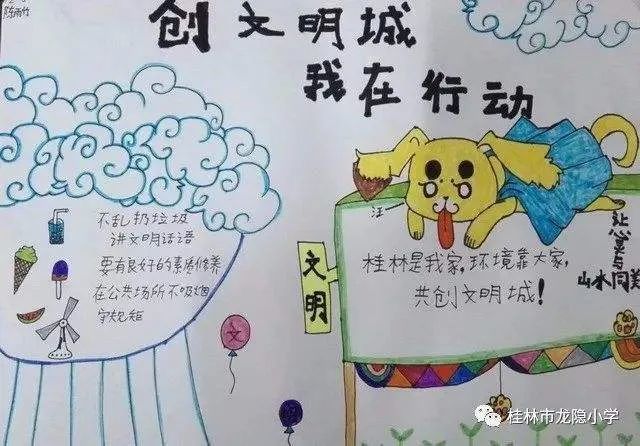 陈雨竹
创文明城
我在行动
不乱扔垃圾
讲文明话语
要有良好的素质修养
在公共场所不吸烟
守规矩
文
汪
文明
桂林是我家,环境靠大家,
共创文明城!
让心灵与
山水同美
桂林市龙隐小学